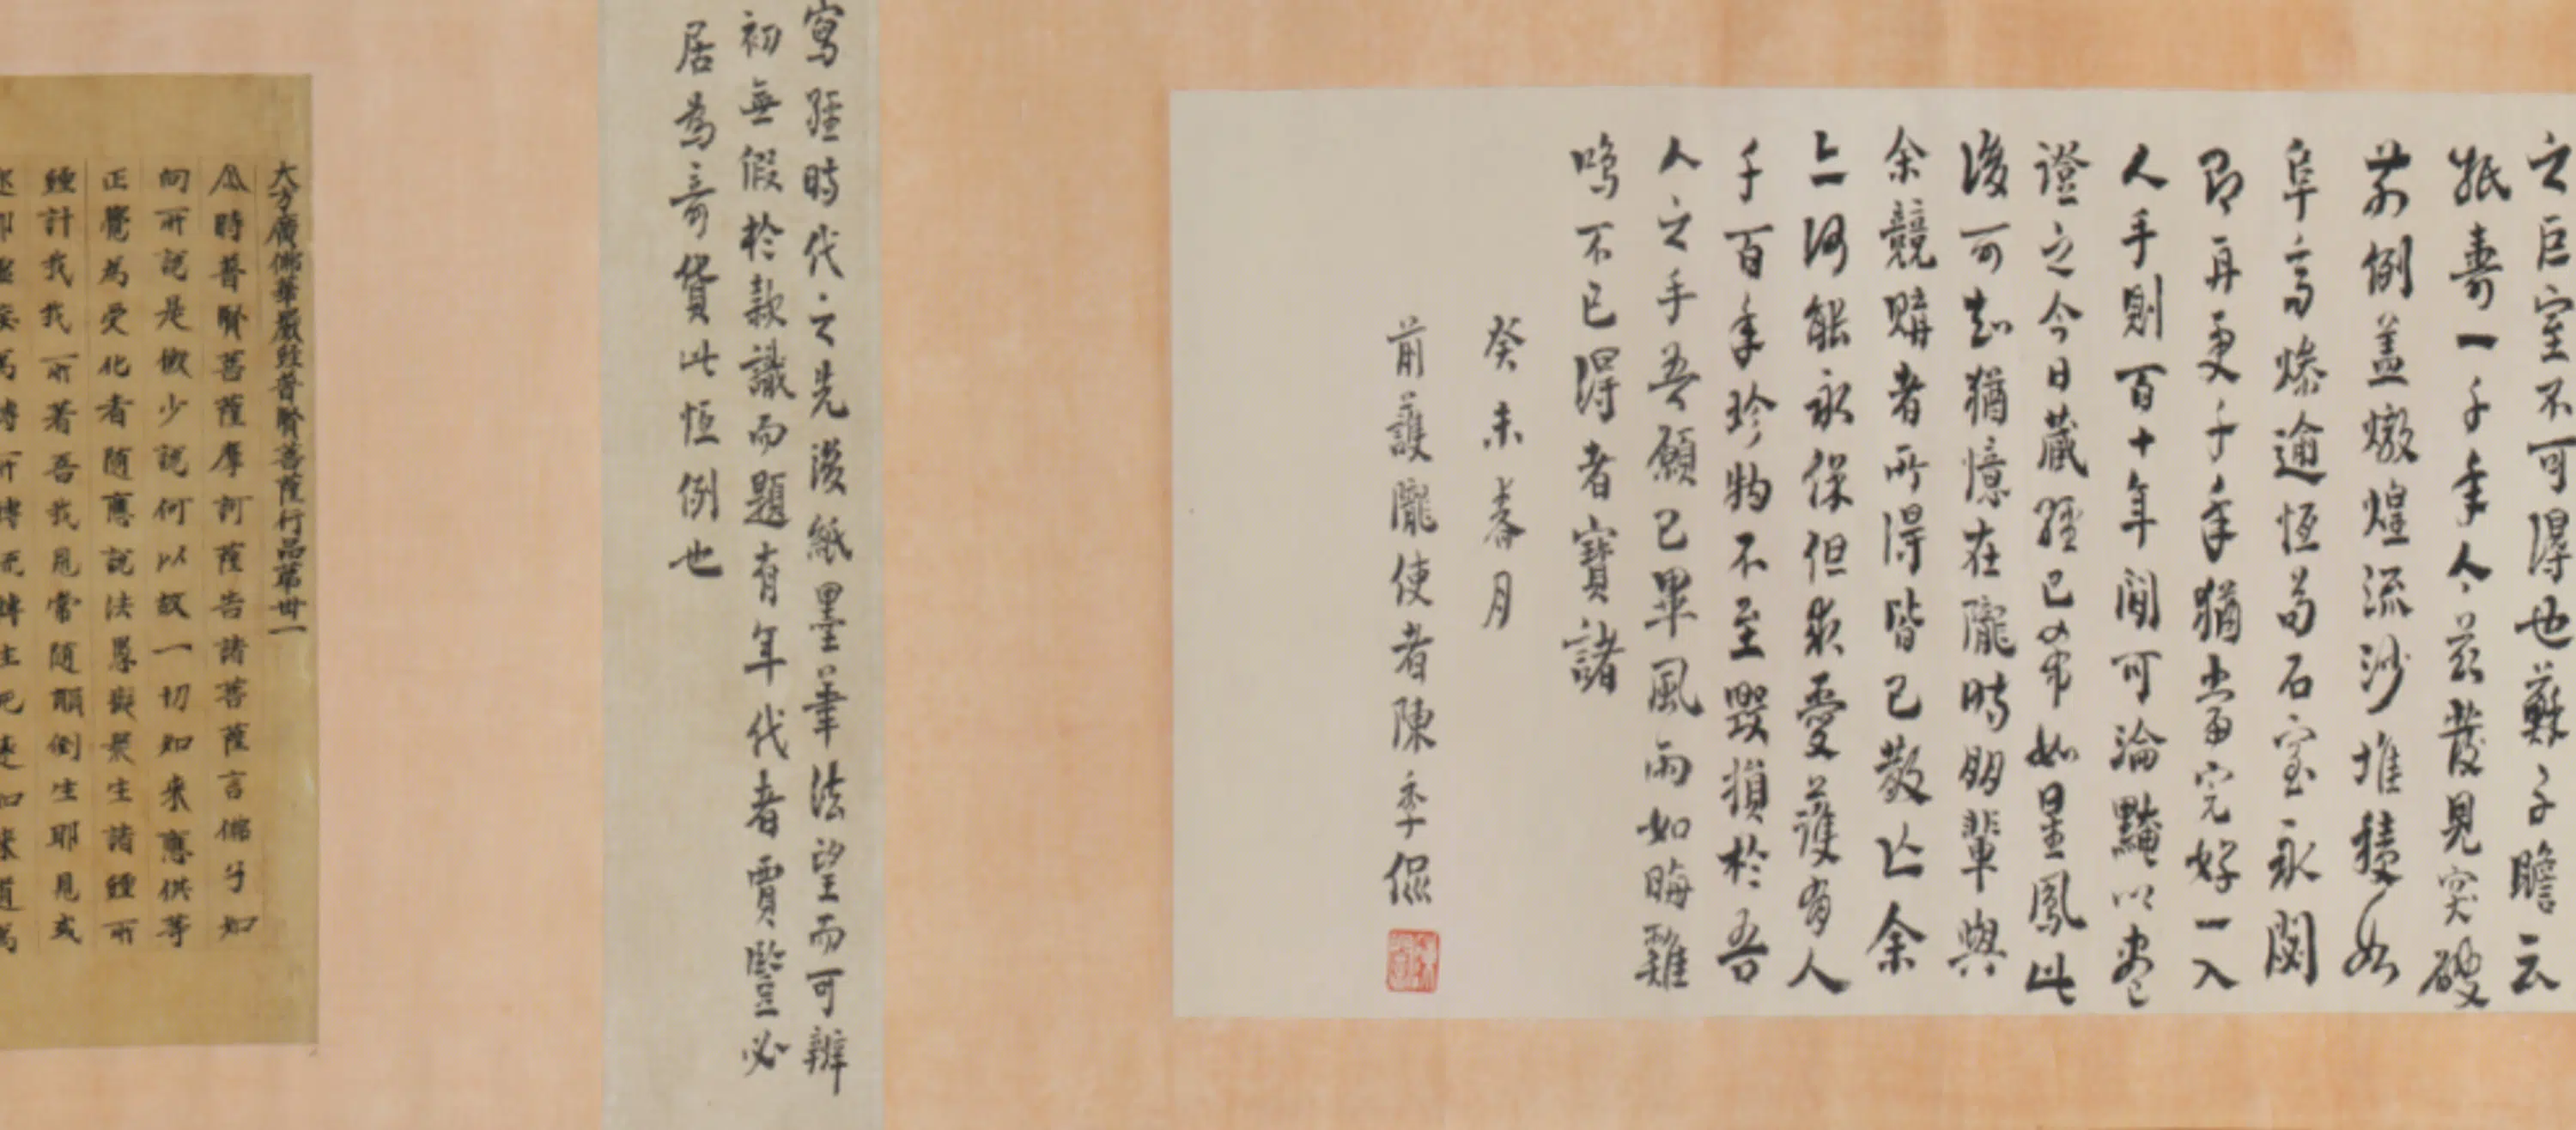 之巨室不可得也蘇子瞻云
紙壽一千年人人茲發見突破
前例蓋燉煌流沙堆積如
阜高燥逾恒為石室永閟
即再更千年猶當完好一入
人手則百十年間可淪黵以盡
證之今日藏經已如星鳳此
後可知猶憶在隴時朋輩與
余競購者所得皆已散亡余
亦何能永保但求愛護有人
千百年珍物不至毀損於吾
人之手吾願已畢風雨如晦雞
鳴不已得者寶諸
癸未春月
前護隴使者陳季侃
寫經時代之先後紙墨筆法望而可辨
初無假於款識而題有年代者賈豎必
居為奇貨此恒例也
大方廣佛華嚴經普賢菩薩行品第卅一
尒時普賢菩薩摩訶薩告諸菩薩言佛子如
向所說是微少說何以故一切如來應供等
正覺為受化者隨應說法愚癡眾生諸纏所
纏計我我所著吾我見常隨顛倒生耶見或